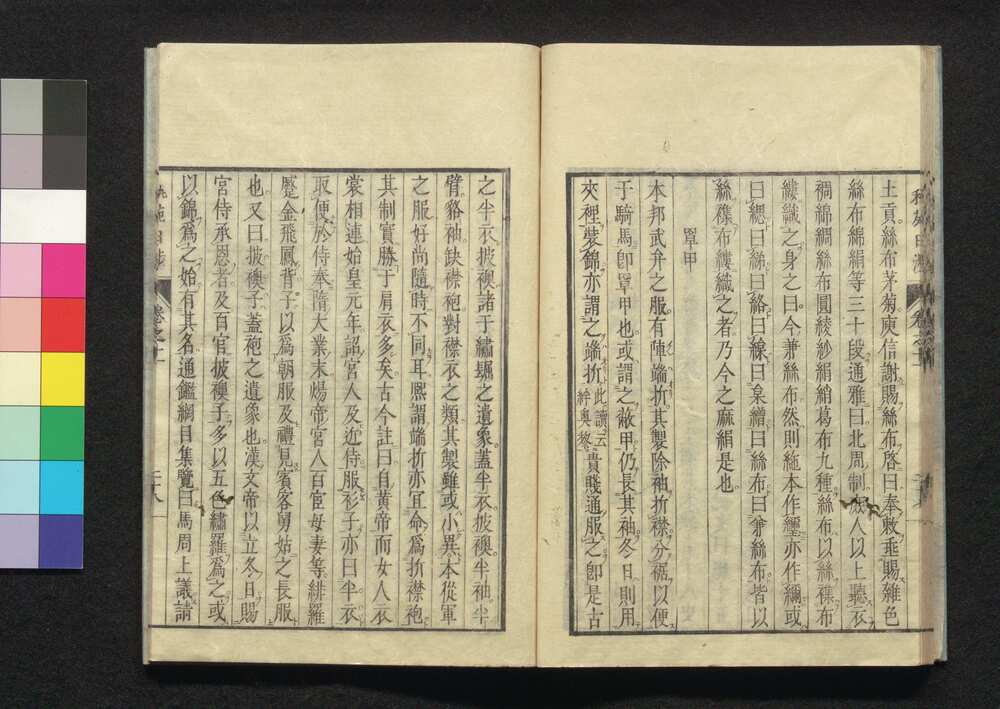 土貢絲布茅菊庾信謝賜絲布啓曰奉敕垂賜雜色
絲布綿絹等三十段通雅曰北周制庶人以上聽衣
裯綿綢絲布圓綾紗絹綃葛布九種絲布以絲襍布
縷織之身之曰今兼絲布然則絁本作纚亦作繝或
曰緦曰綈曰絡曰線曰枲繒曰絲布曰兼絲布皆以
絲襍布縷織之者乃今之麻絹是也
罩甲
本邦武弁之服有陣端折其製除袖折襟分裾以便
于騎馬卽罩甲也或謂之敝甲仍長其袖冬日則用
夾裡裝錦亦謂之端折此讀云貴賤通服之卽是古
之半衣披襖諸于繡𧞫之遺象蓋半衣披襖半袖半
臂貉袖缺襟袍對襟衣之類其製雖或小異本從軍
之服好尚隨時不同耳熙謂端折亦宜命爲折襟袍
其制實勝于肩衣多矣古今註曰自黃帝而女人衣
裳相連始皇元年詔宮人及近侍服衫子亦曰半衣
取便於侍奉隋大業末煬帝宮人百官母妻等緋羅
蹙金飛鳳背子以爲朝服及禮見賓客舅姑之長服
也又曰披襖子蓋袍之遺象也漢文帝以立冬日賜
宮侍承恩者及百官披襖子多以五色繡羅爲之或
以錦爲之始有其名通鑑綱目集覽曰馬周上議請